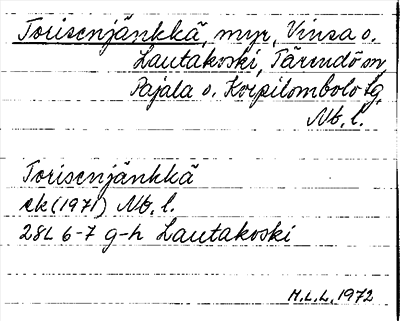 Torisenjänkkä, myr, Vinsa o.
Lautakoski, Tärendö sn,
Pajala o. Korpilombolo tg,
Nb. l.
Torisenjänkkä
ek (1971) Nb. l.
28L 6-7 g-h Lautakoski
H.L.L. 1972